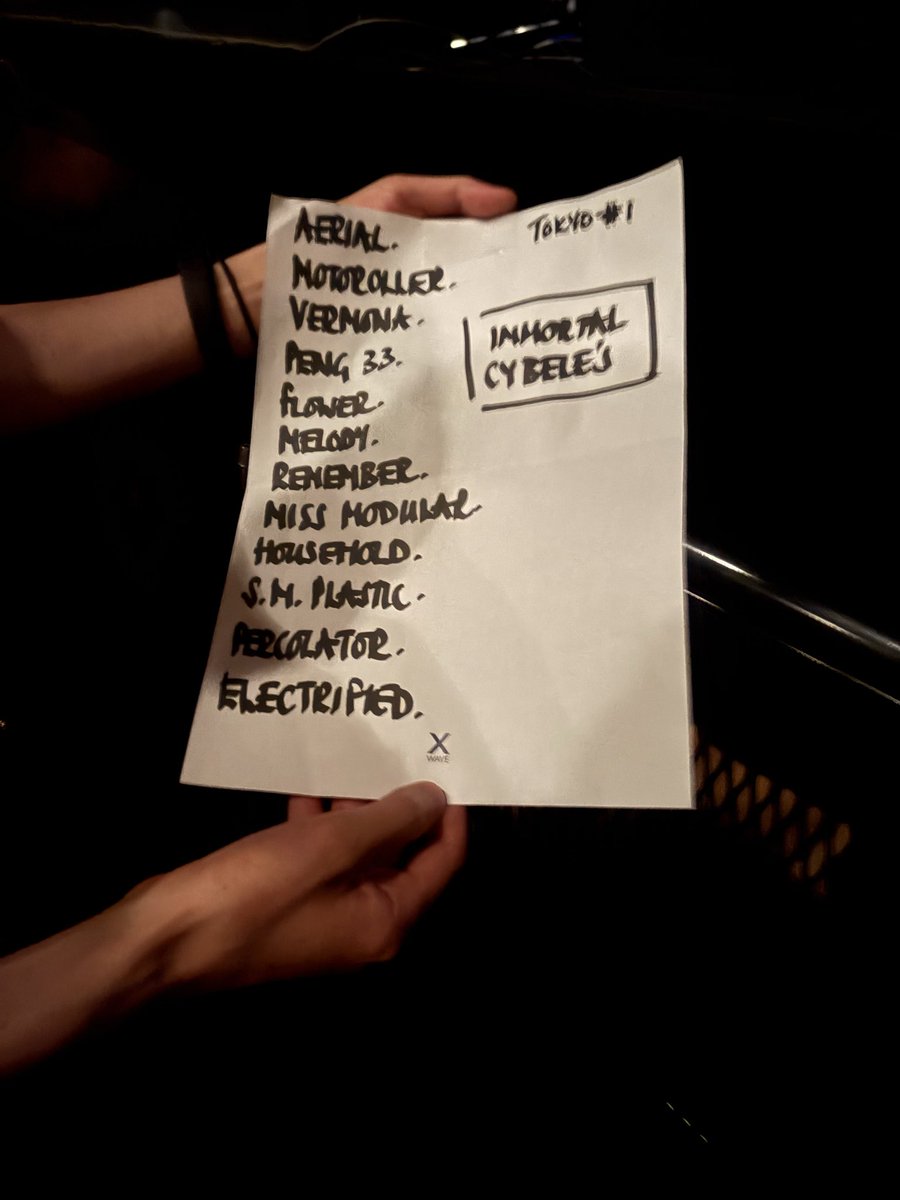 AERIAL.
MOTOROLLER.
VERMONA.
PENG 33.
FLOWER.
MELODY.
REMEMBER.
MISS MODULAR.
HOUSEHOLD.
S.M. PLASTIC.
PERCOLATOR.
ELECTRIFIED.
TOKYO #1
IMMORTAL
CYBELE'S
X
WAVE